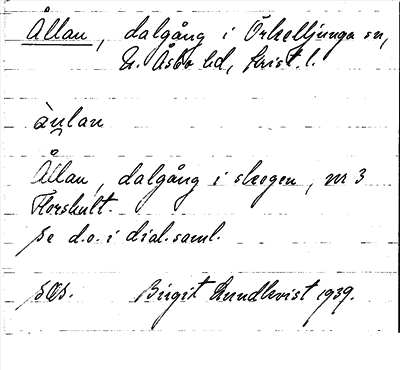 Ållan, dalgång i Örkelljunga sn,
N. Åsbo hd, Krist. l.
Ållan, dalgång i skogen, nr 3
Florshult.
Se d.o. i dial.saml.
Birgit Lundkvist 1939.